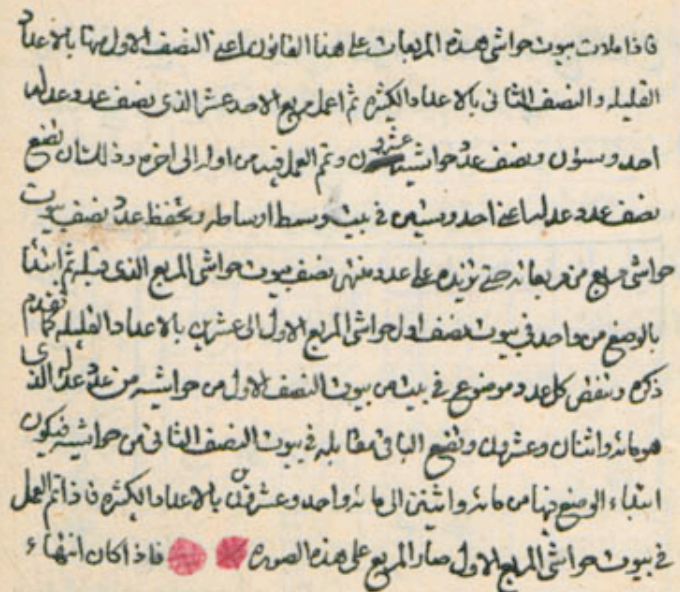 فاذا ملات بيوت حواشى هذه المربعات على هذا القانون اعنى النصف الاول منها بالاعداد
القليله والنصف الثانى بالاعداد الكثيره ثم اعمل مربع الاحد عشر الذى نصف عدد عدله
احد وستون ونصف عدد حواشيه عشرون وتمم العمل فيه من اوله الى اخره وذلك بان تضع
نصف عدد عدلها اعنى احد وستين فى بيت وسط اوساطه وتحفظ عدد نصف بيوت
حواشى مربع من مربعاته حتى تزيده على عدد منتهى نصف بيوت حواشى المربع الذى قبله ثم ابتدأ
بالوضع من واحد فى بيوت نصف اول حواشى المربع الاول الى عشرين بالاعداد القليله كما تقدم
ذكره وتنقص كل عدد موضوع فى بيت من بيوت النصف الاول من حواشيه من عدد عدله الذى
هو مائه واثنان وعشرون وتضع الباقى مقابله فى بيوت النصف الثانى من حواشيه فيكون
ابتداء الوضع فيها من مائه واثنين الى مائه واحد وعشرين بالاعداد الكثيره فاذا تم العمل
فى بيوت حواشى المربع الاول صار المربع على هذه الصوره فاذا كان انتهاء